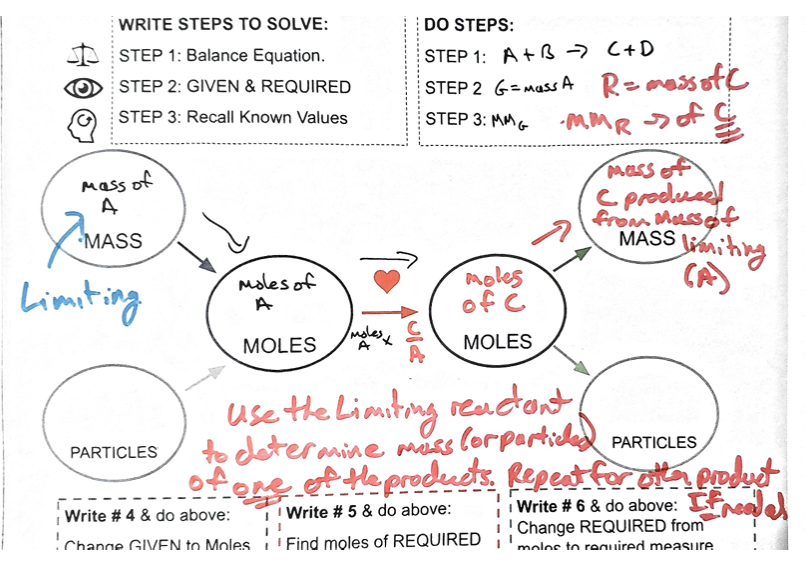 WRITE STEPS TO SOLVE:
STEP 1: Balance Equation.
STEP 2: GIVEN & REQUIRED
STEP 3: Recall Known Values
DO STEPS:
STEP 1: A + B → C + D
STEP 2 G = mass A R = mass of C
STEP 3: MM_G · MM_R → of C
mass of
A
MASS
Limiting
moles of
A
MOLES
moles
A x
C
A
moles
of C
MOLES
mass of
C produced
from mass of
MASS limiting
(A)
PARTICLES
PARTICLES
Use the Limiting reactant
to determine mass (or particles)
of one of the products. Repeat for other product
If needed
Write # 4 & do above:
Change GIVEN to Moles
Write # 5 & do above:
Find moles of REQUIRED
Write # 6 & do above:
Change REQUIRED from
moles to required measure